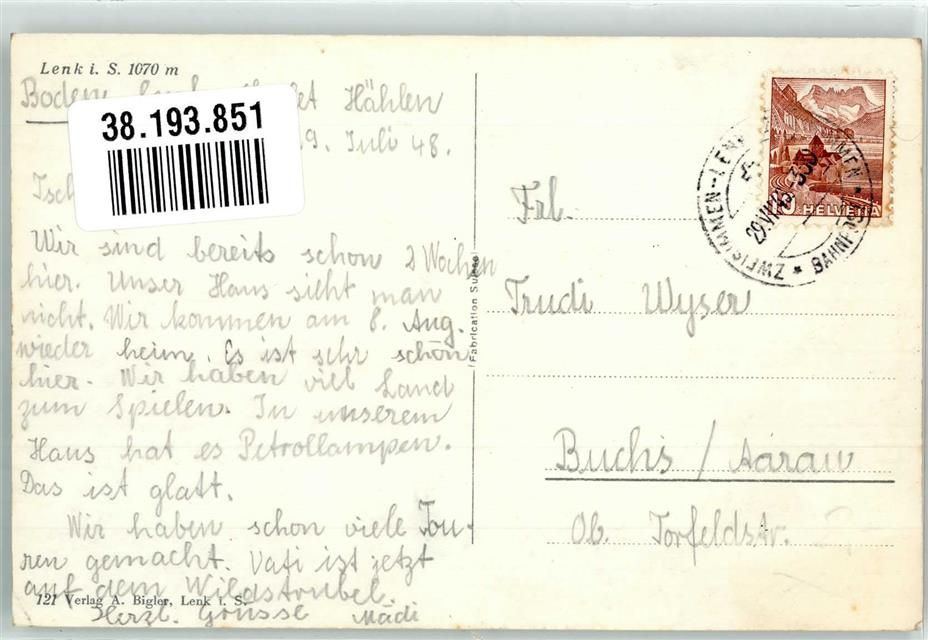 Lenk i. S. 1070 m
Boden Hählen
9. Juli 48.
38.193.851
Tsch
Wir sind bereits schon 2 Wochen
hier. Unser Haus sieht man
nicht. Wir kommen am 8. Aug.
wieder heim. Es ist sehr schön
hier. Wir haben viel Land
zum Spielen. In unserem
Haus hat es Petrollampen.
Das ist glatt.
Wir haben schon viele Tou-
ren gemacht. Vati ist jetzt
auf dem Wildstrubel.
121 Verlag A. Bigler, Lenk i. S.
Herzl. Grüsse Mädi
(Fabrication Suisse)
HELVETIA
ZWEISIMMEN–LENK
BAHNPOST
Frl.
Trudi Wyser
Buchs / Aarau
Ob. Torfeldstr.